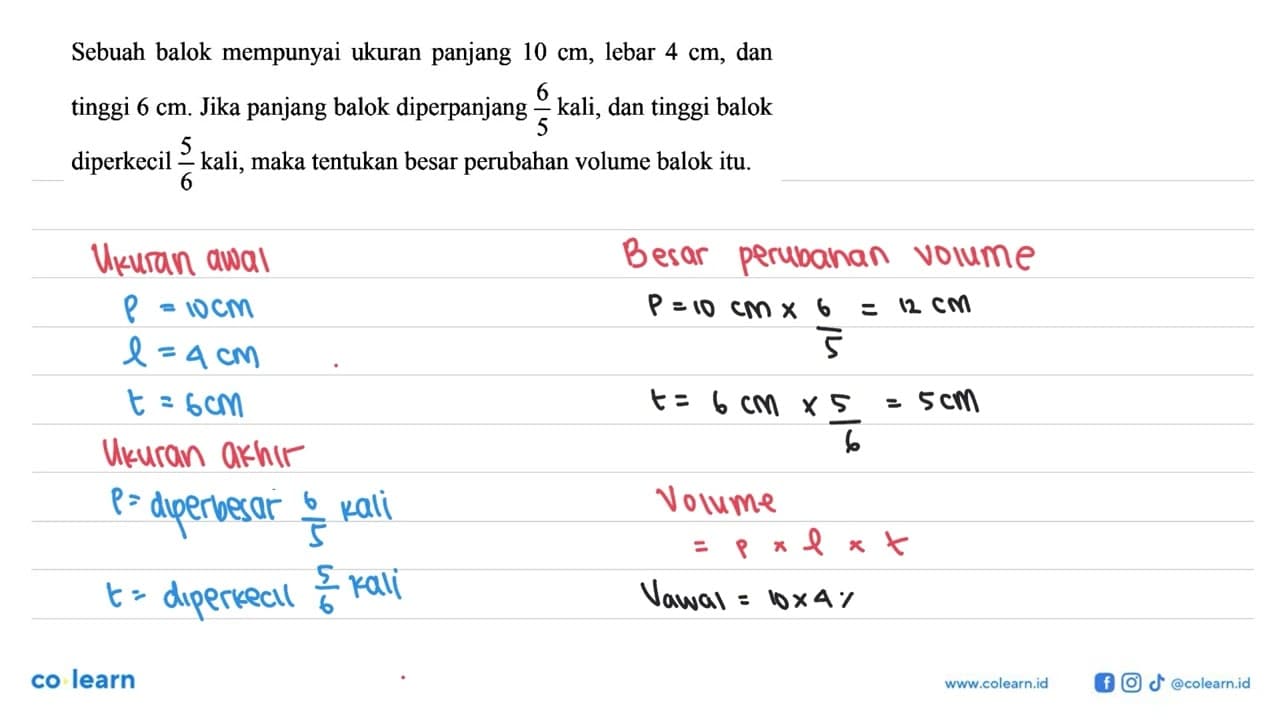 Sebuah balok mempunyai ukuran panjang 10 cm, lebar 4 cm, dan
tinggi 6 cm. Jika panjang balok diperpanjang 6/5 kali, dan tinggi balok
diperkecil 5/6 kali, maka tentukan besar perubahan volume balok itu.
Ukuran awal
p = 10 cm
l = 4 cm
t = 6 cm
Ukuran akhir
p = diperbesar 6/5 kali
t = diperkecil 5/6 kali
Besar perubahan volume
P = 10 cm x 6/5 = 12 cm
t = 6 cm x 5/6 = 5 cm
Volume
= p x l x t
Vawal = 10 x 4
co learn
www.colearn.id
@colearn.id